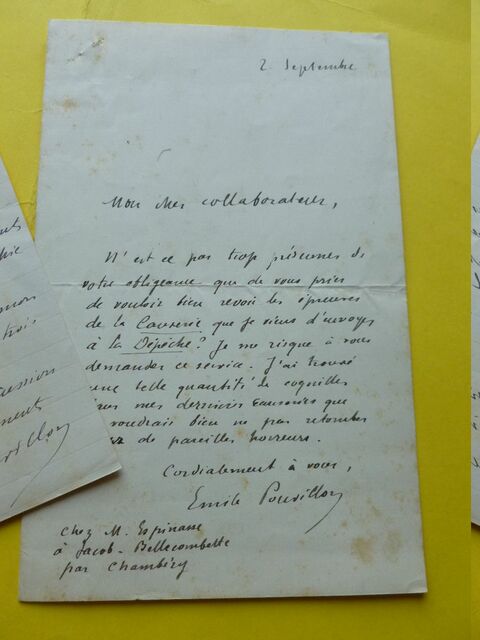 2. Septembre
Mon cher collaborateur,
N'est ce pas trop présumer de
votre obligeance que de vous prier
de vouloir bien revoir les épreuves
de la Causerie que je viens d'envoyer
à la Dépêche? Je me risque à vous
demander ce service. J'ai trouvé
une telle quantité de coquilles
mes dernières causeries que
voudrais bien ne pas retomber
de pareilles horreurs.
Cordialement à vous,
Emile Pouvillon
chez M. Espinasse
à Jacob-Bellecombette
par Chambéry